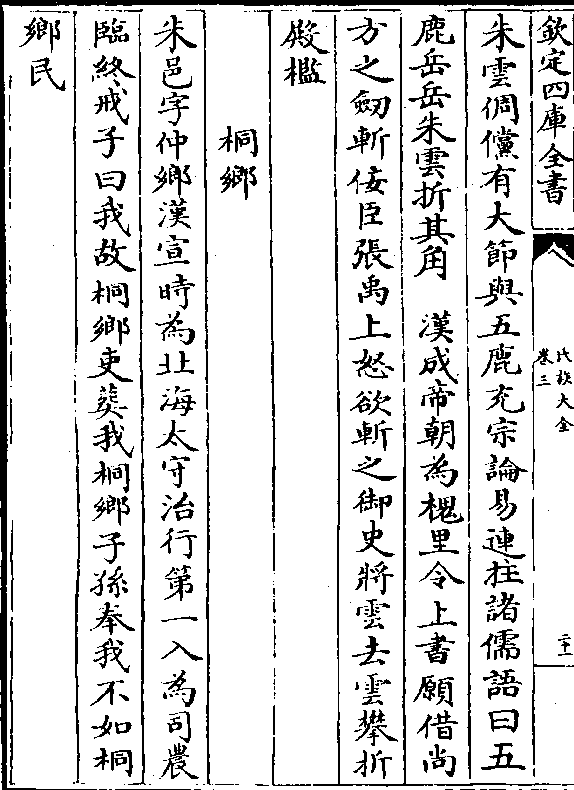 欽定四庫全書
氏族大全
卷三
二十一
朱雲倜儻有大節與五鹿充宗論易連拄諸儒語曰五
鹿岳岳朱雲折其角　漢成帝朝為槐里令上書願借尚
方之劒斬佞臣張禹上怒欲斬之御史將雲去雲攀折
殿檻
桐鄉
朱邑字仲鄉漢宣時為北海太守治行第一入為司農
臨終戒子曰我故桐鄉吏葬我桐鄉子孫奉我不如桐
鄉民